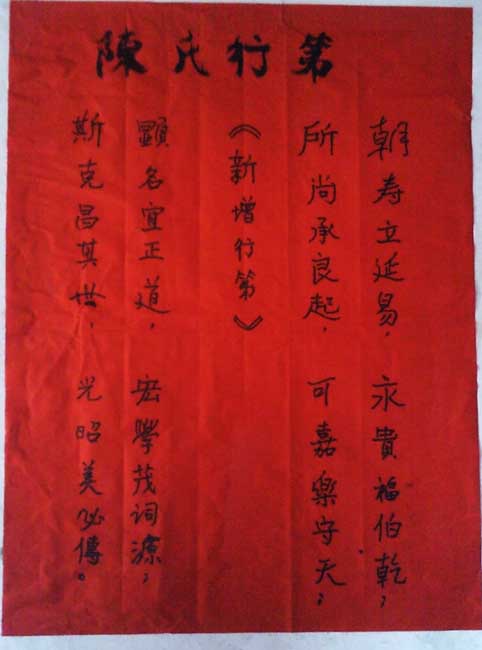 陳氏行第
朝寿立延易，永貴福伯乾；
所尚承良起，可嘉樂守天；
《新增行第》
顕名宜正道，宏學茂词源；
斯克昌其世，光昭美必傳。